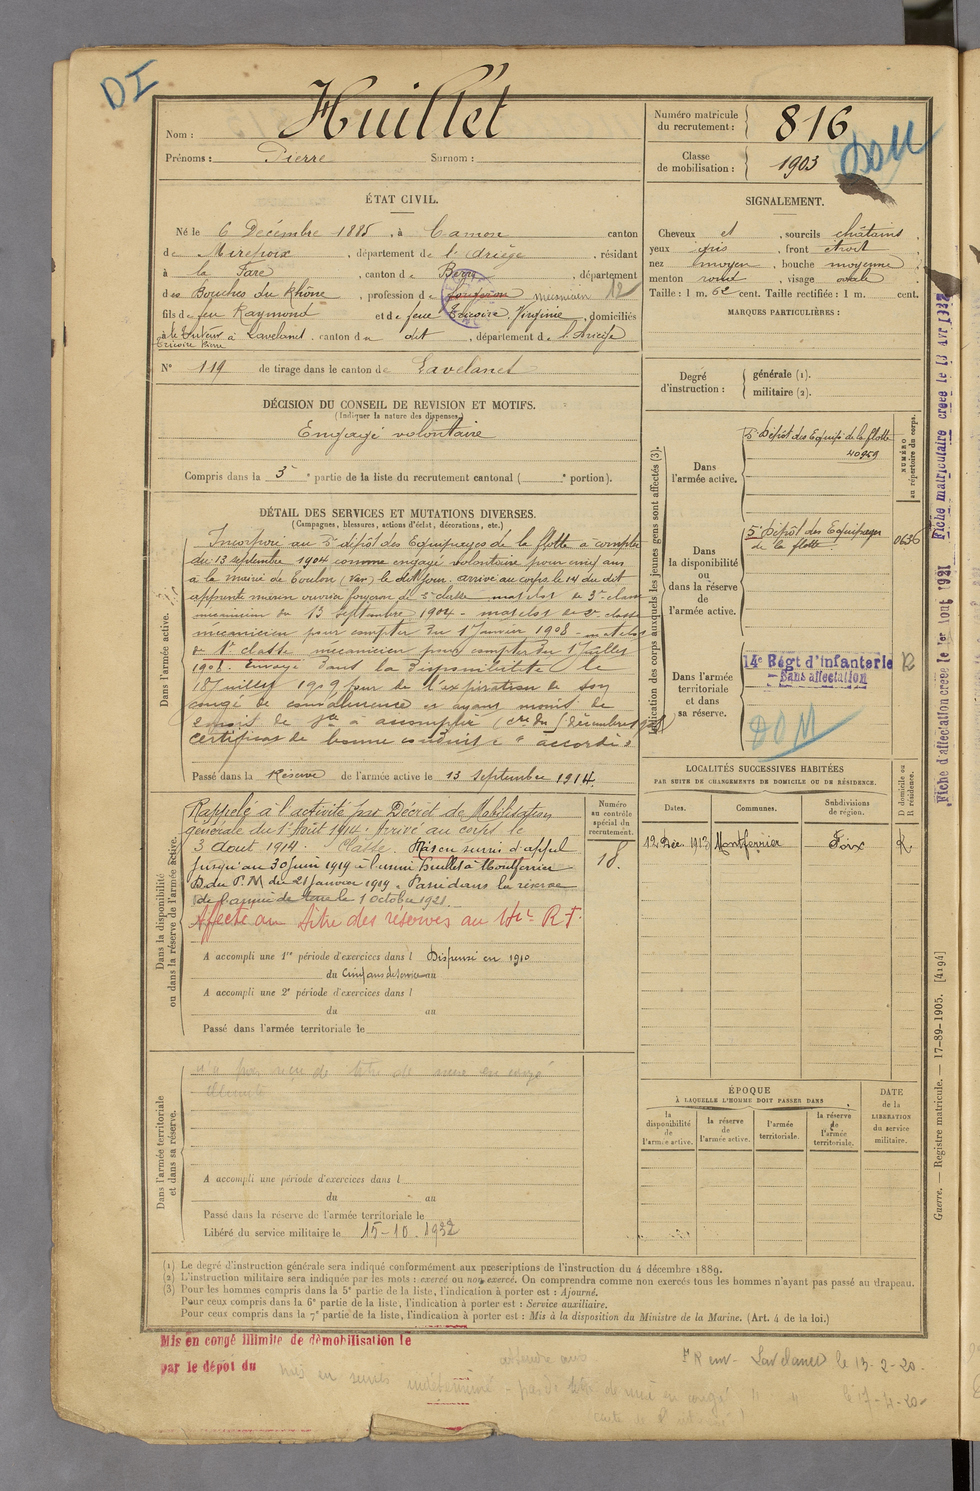 DI
Nom : Huillet
Prénoms : Pierre Surnom :
Numéro matricule du recrutement : 816
Classe de mobilisation : 1903
DOM
ÉTAT CIVIL.
Né le 6 Décembre 1885, à Camon canton
de Mirepoix, département de l'Ariège, résidant
à la Fare, canton de Berre, département
des Bouches du Rhône, profession de forgeron mécanicien 12
fils de feu Raymond et de feue Tricoire Virginie, domiciliés
à le Tuteur à Lavelanet, canton du dit, département de l'Ariège
Tricoire Pierre
N° 119 de tirage dans le canton de Lavelanet
SIGNALEMENT.
Cheveux et sourcils châtains,
yeux gris, front étroit
nez moyen, bouche moyenne
menton rond, visage ovale
Taille : 1 m. 62 cent. Taille rectifiée : 1 m. cent.
MARQUES PARTICULIÈRES :
Degré d'instruction :
générale (1).
militaire (2).
DÉCISION DU CONSEIL DE REVISION ET MOTIFS.
(Indiquer la nature des dispenses.)
Engagé volontaire
Compris dans la 3e partie de la liste du recrutement cantonal ( e portion).
DÉTAIL DES SERVICES ET MUTATIONS DIVERSES.
(Campagnes, blessures, actions d'éclat, décorations, etc.)
Dans l'armée active.
Incorporé au 5e dépôt des Equipages de la flotte à compter
du 13 septembre 1904 comme engagé volontaire pour cinq ans
à la mairie de Toulon (Var) le dit jour. arrivé au corps le 14 du dit
apprenti marin ouvrier forgeron de 2e classe matelot de 3e classe
mécanicien du 13 septembre 1904 - matelot de 2e classe
mécanicien pour compter du 1 Janvier 1908 - matelot
de 1e classe mécanicien pour compter du 1 Juillet
1908. Envoyé dans la disponibilité le
18 Juillet 1909 jour de l'expiration de son
congé de convalescence et ayant moins de
certificat de bonne conduite "accordé"
Passé dans la Réserve de l'armée active le 13 septembre 1914.
Indication des corps auxquels les jeunes gens sont affectés (3).
Dans l'armée active.
5e Dépôt des Equip. de la flotte
40959
NUMÉRO au répertoire du corps.
Dans la disponibilité ou dans la réserve de l'armée active.
5e Dépôt des Equipages
de la flotte
0636
Dans l'armée territoriale et dans sa réserve.
14e Régt d'infanterie
Sans affectation
12
DOM
LOCALITÉS SUCCESSIVES HABITÉES
PAR SUITE DE CHANGEMENTS DE DOMICILE OU DE RÉSIDENCE.
Dates. Communes. Subdivisions de région. D domicile ou R résidence.
12 Déc. 1913 Montferrier Foix R.
Dans la disponibilité ou dans la réserve de l'armée active.
Numéro au contrôle spécial du recrutement.
18.
Rappelé à l'activité par Décret de Mobilisation
générale du 1er Août 1914. Arrivé au corps le
3 Aout 1914. Mis en sursis d'appel
jusqu'au 30 Juin 1919 à l'usine Huillet à Montferrier
D. du P. M du 21 Janvier 1919. Passé dans la réserve
de l'armée de terre le 1 octobre 1921.
Affecté au titre des réserves au 14e R I.
A accompli une 1re période d'exercices dans l Dispensé en 1910
du Cinq ans de service au
A accompli une 2e période d'exercices dans l
du au
Passé dans l'armée territoriale le
Dans l'armée territoriale et dans sa réserve.
n'a pas reçu de titre de mise en congé
illimité
A accompli une période d'exercices dans l
du au
Passé dans la réserve de l'armée territoriale le
Libéré du service militaire le 15-10-1932
ÉPOQUE
À LAQUELLE L'HOMME DOIT PASSER DANS
la disponibilité de l'armée active. la réserve de l'armée active. l'armée territoriale. la réserve de l'armée territoriale.
DATE de la LIBÉRATION du service militaire.
(1) Le degré d'instruction générale sera indiqué conformément aux prescriptions de l'instruction du 4 décembre 1889.
(2) L'instruction militaire sera indiquée par les mots : exercé ou non exercé. On comprendra comme non exercés tous les hommes n'ayant pas passé au drapeau.
(3) Pour les hommes compris dans la 5e partie de la liste, l'indication à porter est : Ajourné.
Pour ceux compris dans la 6e partie de la liste, l'indication à porter est : Service auxiliaire.
Pour ceux compris dans la 7e partie de la liste, l'indication à porter est : Mis à la disposition du Ministre de la Marine. (Art. 4 de la loi.)
Mis en congé illimité de démobilisation le
par le dépôt du
Lavelanet le 13-2-20.
mis en sursis indéterminé - pas de titre de mise en congé
17-4-20
Guerre. — Registre matricule. — 17-89-1905. [4194]
Fiche d'affectation créée le 1er Août 1921
Fiche matriculaire créée le 13 Avr 1932